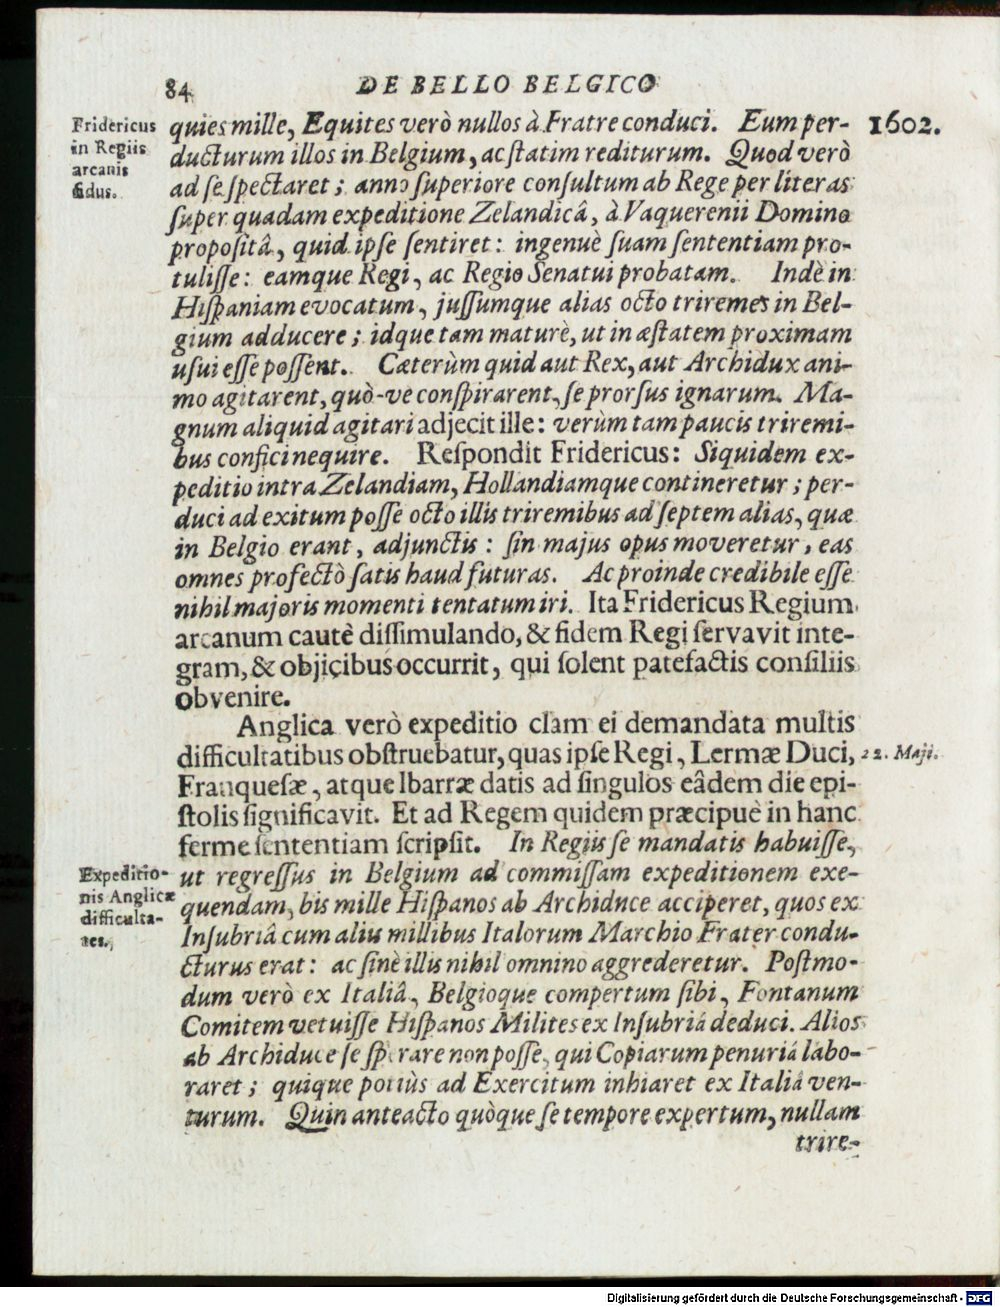 84 DE BELLO BELGICO
Fridericus
in Regiis
arcanis
fidus.
1602.
quies mille, Equites verò nullos à Fratre conduci. Eum per-
ducturum illos in Belgium, ac ſtatim rediturum. Quod verò
ad ſe ſpectaret; anno ſuperiore conſultum ab Rege per literas
ſuper quadam expeditione Zelandicâ, à Vaquerenii Domino
propoſitâ, quid ipſe ſentiret: ingenuè ſuam ſententiam pro-
tuliſſe: eamque Regi, ac Regio Senatui probatam. Indè in
Hiſpaniam evocatum, juſſumque alias octo triremes in Bel-
gium adducere; idque tam maturè, ut in æſtatem proximam
uſui eſſe poſſent. Cæterùm quid aut Rex, aut Archidux ani-
mo agitarent, quò-ve conſpirarent, ſe prorſus ignarum. Ma-
gnum aliquid agitari adjecit ille: verùm tam paucis triremi-
bus confici nequire. Reſpondit Fridericus: Siquidem ex-
peditio intra Zelandiam, Hollandiamque contineretur; per-
duci ad exitum poſſe octo illis triremibus ad ſeptem alias, quæ
in Belgio erant, adjunctis: ſin majus opus moveretur, eas
omnes profectò ſatis haud futuras. Ac proinde credibile eſſe
nihil majoris momenti tentatum iri. Ita Fridericus Regium
arcanum cautè diſſimulando, & fidem Regi ſervavit inte-
gram, & objicibus occurrit, qui ſolent patefactis conſiliis
obvenire.
Anglica verò expeditio clam ei demandata multis
difficultatibus obſtruebatur, quas ipſe Regi, Lermæ Duci,
22. Maji.
Franqueſæ, atque Ibarræ datis ad ſingulos eâdem die epi-
ſtolis ſignificavit. Et ad Regem quidem præcipuè in hanc
ferme ſententiam ſcripſit. In Regiis ſe mandatis habuiſſe,
Expeditio-
nis Anglicæ
difficulta-
tes.
ut regreſſus in Belgium ad commiſſam expeditionem exe-
quendam, bis mille Hiſpanos ab Archiduce acciperet, quos ex
Inſubriâ cum aliis millibus Italorum Marchio Frater condu-
cturus erat: ac ſinè illis nihil omnino aggrederetur. Poſtmo-
dum verò ex Italiâ, Belgioque compertum ſibi, Fontanum
Comitem vetuiſſe Hiſpanos Milites ex Inſubriâ deduci. Alios
ab Archiduce ſe ſperare non poſſe, qui Copiarum penuriâ labo-
raret; quique potiùs ad Exercitum inhiaret ex Italiâ ven-
turum. Quin anteacto quòque ſe tempore expertum, nullam
trire-
Digitalisierung gefördert durch die Deutsche Forschungsgemeinschaft - DFG